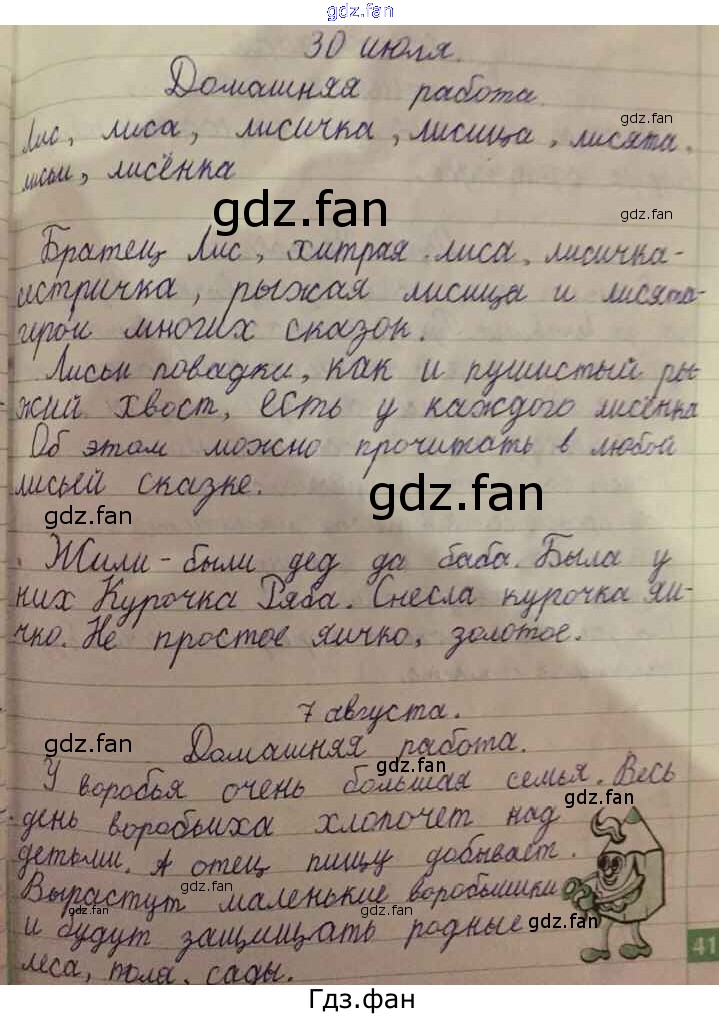 gdz.fan
30 июля.
Домашняя работа.
gdz.fan
Лис, лиса, лисичка, лисица, лисята.
лисьи, лисёнка
gdz.fan
gdz.fan
Братец Лис, хитрая лиса, лисичка-
истричка, рыжая лисица и лисята-
герои многих сказок.
Лисьи повадки, как и пушистый ры-
жий хвост, есть у каждого лисёнка
Об этом можно прочитать в любой
лисьей сказке.
gdz.fan
gdz.fan
Жили-были дед да баба. Была у
них Курочка Ряба. Снесла курочка яи-
чко. Не простое яичко, золотое.
7 августа.
Домашняя работа.
gdz.fan
gdz.fan
У воробья очень большая семья. Весь
gdz.fan
день воробьиха хлопочет над
детьми. А отец пищу добывает.
Вырастут маленькие воробышки
gdz.fan
gdz.fan
и будут защищать родные
gdz.fan
леса, поля, сады.
gdz.fan
41
Гдз.фан